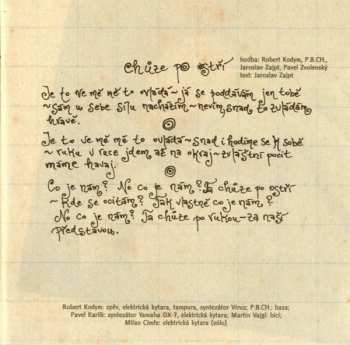 hudba: Robert Kodym, P.B.CH.,
Jaroslav Zajpt, Pavel Zvolenský
text: Jaroslav Zajpt
chůze po ostří
Je to ve mě mě to ovládá ~ já se poddávám jen tobě
~ sám v sebe sílu nacházím ~ nevím snad, to zvládám
hravě.
Je to ve mě mě to ovládá ~ snad i hodíme se k sobě
~ ruku v ruce jdem až na okraj ~ zvláštní pocit
máme havaj.
Co je nám? No co je nám? Ta chůze po ostří
~ Kde se ocitám? Tak vlastně co je nám?
No co je nám? Ta chůze po rukou ~ za naší
představou.
Robert Kodym: zpěv, elektrická kytara, tampura, syntezátor Virus; P.B.CH.: basa;
Pavel Karlík: syntezátor Yamaha DX-7, elektrická kytara; Martin Vajgl: bicí;
Milan Cimfe: elektrická kytara (sólo)